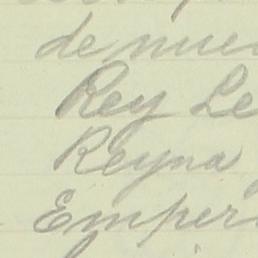 de nue
Rey Le
Reyna
Emper